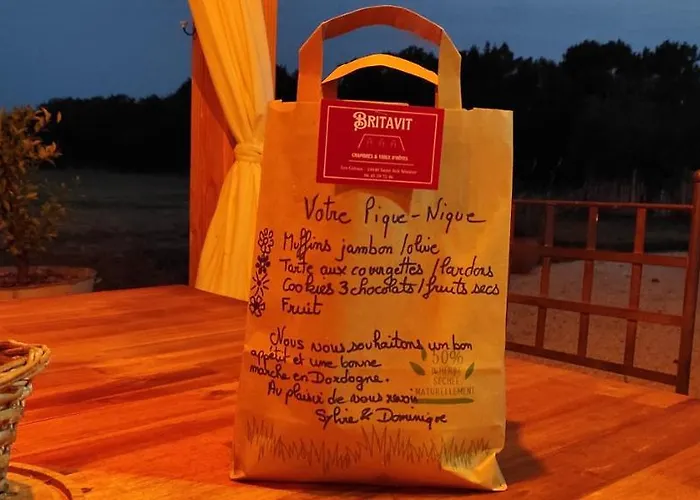 BRITAVIT
CHAMBRES & TABLE D'HÔTES
Votre Pique-Nique
Muffins jambon/olive
Tarte aux courgettes/lardons
Cookies 3 chocolats/fruits secs
Fruit
Nous vous souhaitons un bon
appétit et une bonne
marche en Dordogne.
Au plaisir de vous revoir
Sylvie & Dominique
50%
D'HERBE
SÉCHÉE
NATURELLEMENT